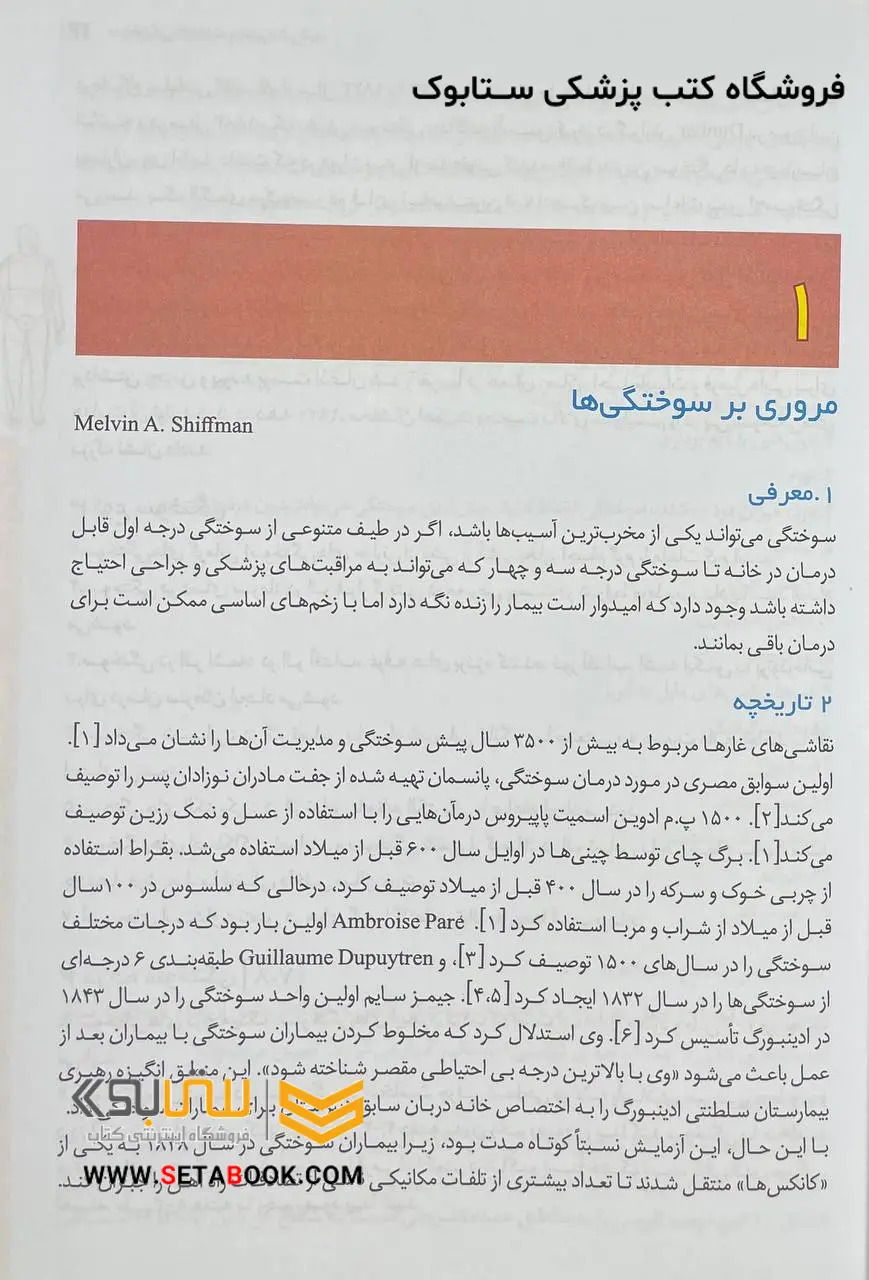 فروشگاه کتب پزشکی ستابوک
۱
مروری بر سوختگی‌ها
Melvin A. Shiffman
۱.معرفی
سوختگی می‌تواند یکی از مخرب‌ترین آسیب‌ها باشد، اگر در طیف متنوعی از سوختگی درجه اول قابل
درمان در خانه تا سوختگی درجه سه و چهار که می‌تواند به مراقبت‌های پزشکی و جراحی احتیاج
داشته باشد وجود دارد که امیدوار است بیمار را زنده نگه دارد اما با زخم‌های اساسی ممکن است برای
درمان باقی بمانند.
۲ تاریخچه
نقاشی‌های غارها مربوط به بیش از ۳۵۰۰ سال پیش سوختگی و مدیریت آن‌ها را نشان می‌داد [۱].
اولین سوابق مصری در مورد درمان سوختگی، پانسمان تهیه شده از جفت مادران نوزادان پسر را توصیف
می‌کند[۲]. ۱۵۰۰ پ.م ادوین اسمیت پاپیروس درمآن‌هایی را با استفاده از عسل و نمک رزین توصیف
می‌کند[۱]. برگ چای توسط چینی‌ها در اوایل سال ۶۰۰ قبل از میلاد استفاده می‌شد. بقراط استفاده
از چربی خوک و سرکه را در سال ۴۰۰ قبل از میلاد توصیف کرد، درحالی که سلسوس در ۱۰۰سال
قبل از میلاد از شراب و مربا استفاده کرد [۱]. Ambroise Paré اولین بار بود که درجات مختلف
سوختگی را در سال‌های ۱۵۰۰ توصیف کرد [۳]، و Guillaume Dupuytren طبقه‌بندی ۶ درجه‌ای
از سوختگی‌ها را در سال ۱۸۳۲ ایجاد کرد [۴،۵]. جیمز سایم اولین واحد سوختگی را در سال ۱۸۴۳
در ادینبورگ تأسیس کرد [۶]. وی استدلال کرد که مخلوط کردن بیماران سوختگی با بیماران بعد از
عمل باعث می‌شود «وی با بالاترین درجه بی احتیاطی مقصر شناخته شود». این منطق انگیزه رهبری
بیمارستان سلطنتی ادینبورگ را به اختصاص خانه دربان سابق
با این حال، این آزمایش نسبتاً کوتاه مدت بود، زیرا بیماران سوختگی در سال ۱۸۴۸ به یکی از
«کانکس‌ها» منتقل شدند تا تعداد بیشتری از تلفات مکانیکی ناشی از تصادفات راه آهن را جبران کند.
ستابوک
فروشگاه اینترنتی کتاب
WWW.SETABOOK.COM